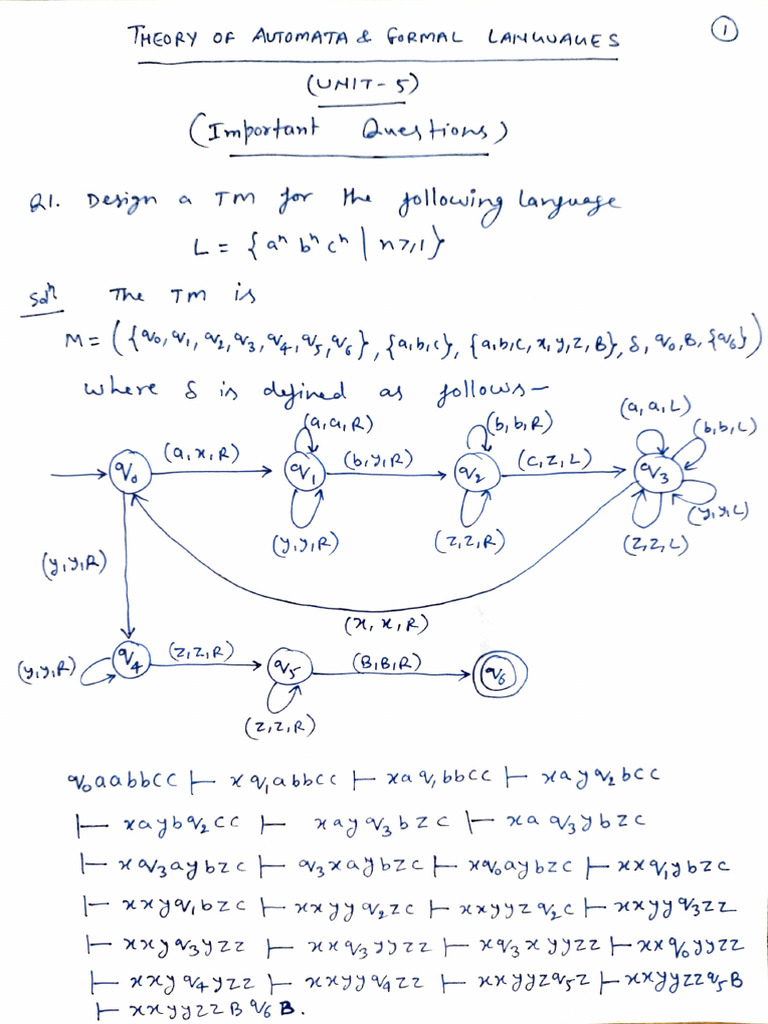 ①
THEORY OF AUTOMATA & FORMAL LANGUAGES
(UNIT-5)
(Important Questions)
Q1. Design a TM for the following language
L = {aⁿ bⁿ cⁿ | n≥1}
Solⁿ The TM is
M = ({q₀, q₁, q₂, q₃, q₄, q₅, q₆}, {a,b,c}, {a,b,c,x,y,z,B}, δ, q₀, B, {q₆})
where δ is defined as follows—
(a,a,R) (b,b,R) (a,a,L)
(b,b,L)
q₀ (a,x,R) q₁ (b,y,R) q₂ (c,z,L) q₃
(y,y,L)
(y,y,R) (y,y,R) (z,z,R) (z,z,L)
(x,x,R)
(y,y,R) q₄ (z,z,R) q₅ (B,B,R) q₆
(z,z,R)
q₀aabbcc ⊢ xq₁abbcc ⊢ xaq₁bbcc ⊢ xayq₂bcc
⊢ xaybq₂cc ⊢ xayq₃bzc ⊢ xaq₃ybzc
⊢ xq₃aybzc ⊢ q₃xaybzc ⊢ xq₀aybzc ⊢ xxq₁ybzc
⊢ xxyq₁bzc ⊢ xxyyq₂zc ⊢ xxyyzq₂c ⊢ xxyyq₃zz
⊢ xxyq₃yzz ⊢ xxq₃yyzz ⊢ xq₃xyyzz ⊢ xxq₀yyzz
⊢ xxyq₄yzz ⊢ xxyyq₄zz ⊢ xxyyzq₅z ⊢ xxyyzzq₅B
⊢ xxyyzzBq₆B.